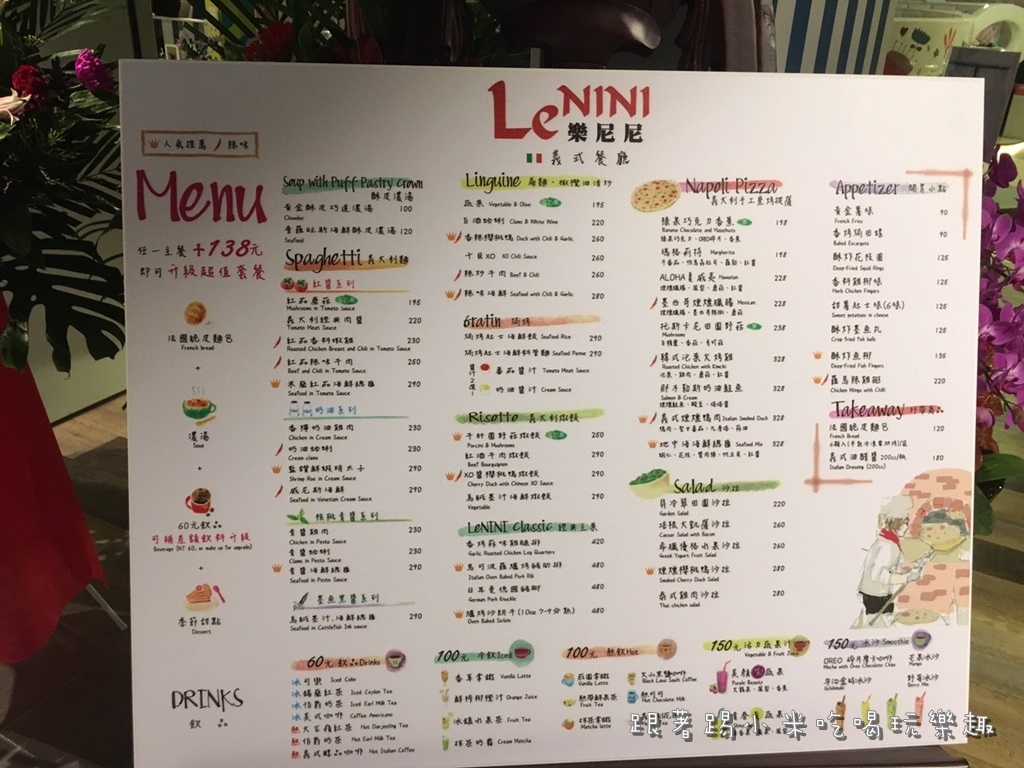 LeNINI
樂尼尼
義式餐廳
人氣推薦 辣味
Menu
任一主餐+138元
即可升級超值套餐
法國脆皮麵包
French bread
+
濃湯
Soup
+
60元飲品
可補差額飲料升級
Beverage (NT 60, or make up for upgrade)
+
季節甜點
Dessert
Soup with Puff Pastry Crown
酥皮濃湯
黃金酥皮巧達濃湯 100
Chowder
普羅旺斯海鮮酥皮濃湯 120
Seafood
Spaghetti 義大利麵
紅醬系列
紅茄蘑菇 195
Mushrooms in Tomato Sauce
義大利經典肉醬 220
Tomato Meat Sauce
紅茄香料嫩雞 230
Roasted Chicken Breast and Chili in Tomato Sauce
紅茄辣味牛肉 250
Beef and Chili in Tomato Sauce
米蘭紅茄海鮮總匯 290
Seafood in Tomato Sauce
奶油系列
香檸奶油雞肉 230
Chicken in Cream Sauce
奶油蛤蜊 230
Cream clams
藍鑽鮮蝦明太子 290
Shrimp Roe in Cream Sauce
威尼斯海鮮 290
Seafood in Venetian Cream Sauce
核桃青醬系列
青醬雞肉 230
Chicken in Pesto Sauce
青醬蛤蜊 230
Clams in Pesto Sauce
青醬海鮮總匯 290
Seafood in Pesto Sauce
墨魚黑醬系列
烏賊墨汁.海鮮總匯 290
Seafood in Cuttlefish Ink sauce
Linguine 扁麵、橄欖油清炒
蔬果 Vegetable & Olive 195
白酒蛤蜊 Clams & White Wine 220
香辣櫻桃鴨 Duck with Chili & Garlic 260
干貝XO XO Chili Sauce 260
辣炒牛肉 Beef & Chili 260
辣味海鮮 Seafood with Chili & Garlic 280
Gratin 焗烤
焗烤起士海鮮飯 Seafood Rice 290
焗烤起士海鮮斜管麵 Seafood Penne 290
醬汁2選1
番茄醬汁 Tomato Meat Sauce
奶油醬汁 Cream Sauce
Risotto 義大利燉飯
牛肝菌野菇燉飯 260
Porcini & Mushrooms
紅酒牛肉燉飯 290
Beef Bourguignon
XO醬櫻桃鴨燉飯 290
Cherry Duck with Chinese XO Sauce
烏賊墨汁海鮮燉飯 290
Vegetable
LeNINI Classic 經典主菜
香烤蒜味雞腿排 420
Garlic Roasted Chicken Leg Quarters
馬可波羅爐烤豬肋排 480
Italian Oven Baked Pork Rib
日耳曼德國豬腳 480
German Pork Knuckle
爐烤沙朗牛(10oz 7-9分熟) 480
Oven Baked Sirloin
Napoli Pizza
義大利手工窯烤披薩
榛果巧克力香蕉 198
Banana Chocolate and Hazelnuts
榛果巧克力、OREO碎片、香蕉
瑪格莉特 Margherita 198
ALOHA夏威夷 Hawaiian 228
墨西哥煙燻臘腸 Mexican 228
托斯卡尼田園野菇 238
Mushrooms
韓式泡菜火烤雞 328
Roasted Chicken with Kimchi
泡菜、雞肉、蘑菇、紅醬
那不勒斯奶油鮭魚 328
Salmon & Cream
義式煙燻鴨肉 Italian Smoked Duck 328
地中海海鮮總匯 Seafood Mix 328
Salad 沙拉
什冷翠田園沙拉 220
Garden Salad
培根大凱薩沙拉 260
Caesar Salad with Bacon
希臘優格水果沙拉 260
Greek Yogurt Fruit Salad
煙燻櫻桃鴨沙拉 280
Smoked Cherry Duck Salad
泰式雞肉沙拉 280
Thai chicken salad
Appetizer 開胃小點
黃金薯條 90
French Fries
香烤焗田螺 90
Baked Escargots
酥炸花枝圈 125
Deep-Fried Squid Rings
香料雞柳條 125
Herb Chicken Fingers
甜薯起士條(6條) 125
Sweet potatoes in cheese
酥炸墨魚丸 125
Crisp fried fish balls
酥炸魚柳 135
Deep-Fried Fish Fingers
羅馬辣雞翅 220
Chicken Wings with Chilli
Takeaway 好帶商品
法國脆皮麵包 120
French Bread
義式油醋醬 200cc/瓶 180
Italian Dressing (200cc)
DRINKS
飲品
60元飲品Drinks
冰可樂 Iced Coke
冰錫蘭紅茶 Iced Ceylon Tea
冰伯爵奶茶 Iced Earl Milk Tea
冰美式咖啡 Coffee Americano
熱大吉嶺紅茶 Hot Darjeeling Tea
熱伯爵奶茶 Hot Earl Milk Tea
熱義式醇品咖啡 Hot Italian Coffee
100元 冷飲Iced
香草拿鐵 Vanilla Latte
鮮榨柳橙汁 Orange Juice
冰鎮水果茶 Fruit Tea
抹茶奶霜 Creme Matcha
100元 熱飲Hot
莊園拿鐵 Vanilla Latte
熱帶鮮果茶 Fruit Tea
抹茶拿鐵 Matcha Latte
火山黑糖咖啡
Black Lava Sault Coffee
熱可可
Hot Chocolate Milk
150元 活力蔬果汁
Vegetable & Fruit Juice
美顏蔬果
Purple Beauty
150元 冰沙 Smoothie
OREO 碎片摩卡咖啡
Mocha with Oreo Chocolate Chips
宇治金時冰沙
Uchikinoki
芒果冰沙
Mango
野莓冰沙
Berry Mix
跟著踢小米吃喝玩樂趣